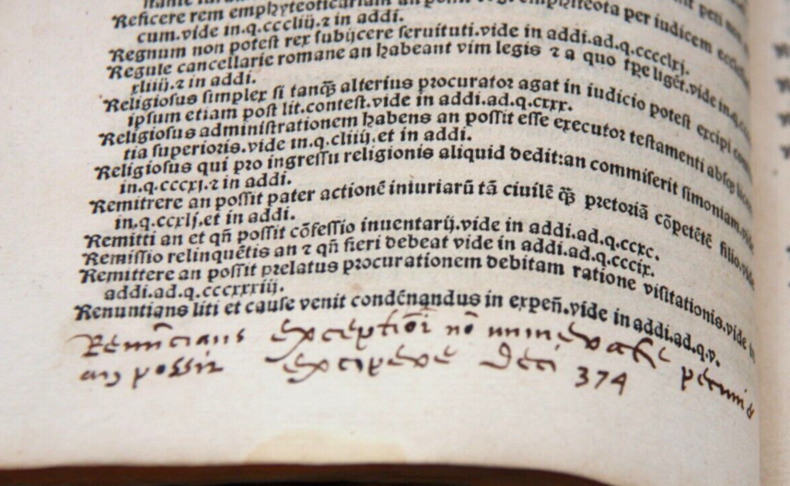 Reficere rem emphyteoticariam an possit
cum.vide in.q.cccliij.⁊ in addi.
emphiteota per iudicem
Regnum non potest rex subijcere seruituti.vide in addi.ad.q.cccclxj.
Regule cancellarie romane an habeant vim legis ⁊ a quo tp̄e liget.vide in.q.
xliiij.⁊ in addi.
Religiosus simplex si tanq̄ȝ alterius procurator agat in iudicio potest excipi
ipsum etiam post lit.contest.vide in addi.ad.q.cxxx.
Religiosus administrationem habens an possit esse executor testamenti absq
tia superioris.vide in.q.cliiij.et in addi.
Religiosus qui pro ingressu religionis aliquid dedit:an commiserit simoniam.vide
in.q.cccxj.⁊ in addi.
Remitrere an possit pater actionē iniuriarū tā ciuilē q̄ȝ pretoriā cōpetētē filio.vide
in.q.ccxlj.et in addi.
Remitti an et qn̄ possit cōfessio inuentarij.vide in addi.ad.q.ccxc.
Remissio relinquētis an ⁊ qn̄ fieri debeat vide in addi.ad.q.cccix.
Remittere an possit prelatus procurationem debitam ratione visitationis.vide in
addi.ad.q.cccxxxiij.
Renuntians liti et cause venit condēnandus in expen̄.vide in addi.ad.q.v.
Renūcians exceptiōī nō
an possit excipere Deci 374